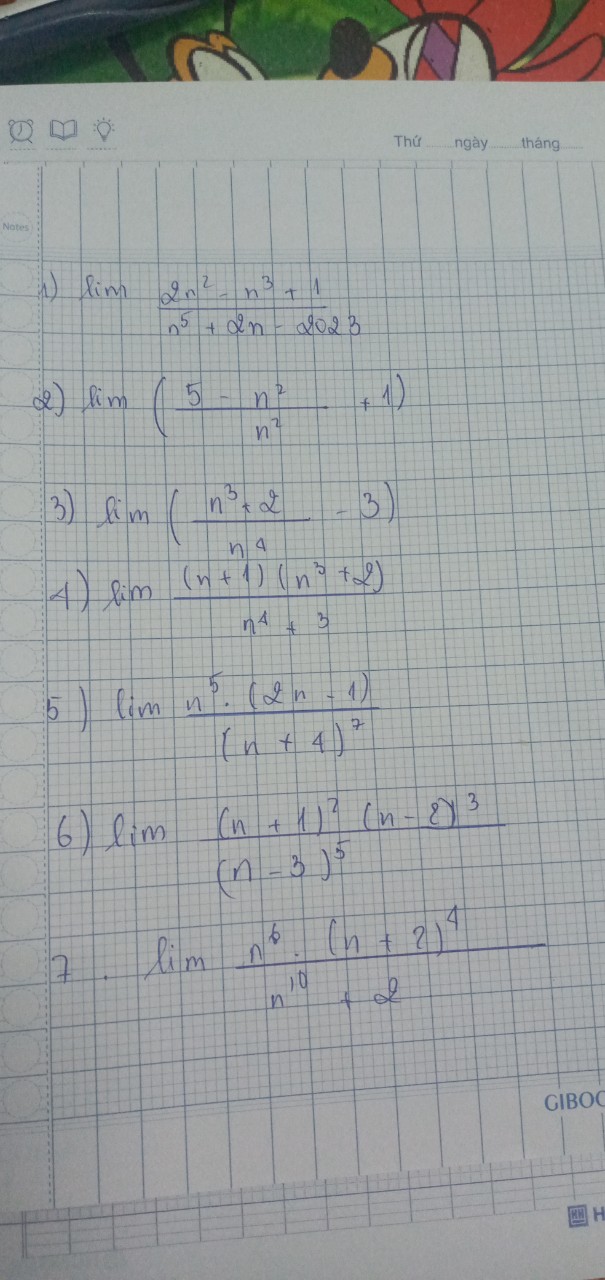 Thứ ngày tháng
Notes
1) lim (2n² - n³ + 1)/(n⁵ + 2n - 2023)
2) lim ((5 - n²)/n² + 1)
3) lim ((n³ + 2)/n⁴ - 3)
4) lim ((n + 1)(n³ + 2))/(n⁴ + 3)
5) lim (n⁵ . (2n - 1))/(n + 4)⁷
6) lim ((n + 1)² (n - 2)³)/(n - 3)⁵
7. lim (n⁶ . (n + 2)⁴)/(n¹⁰ + 2)
GIBOO
H